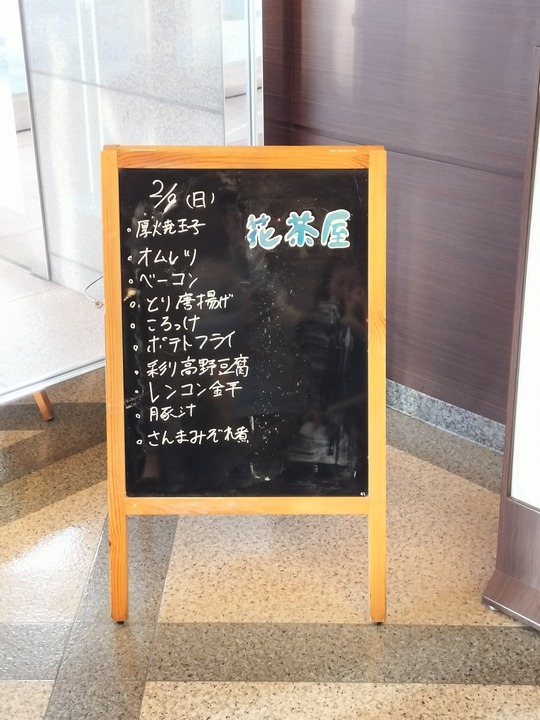 2/9(日)
花茶屋
。厚焼玉子
。オムレツ
。ベーコン
。とり唐揚げ
。ころっけ
。ポテトフライ
。彩り高野豆腐
。レンコン金平
。豚汁
。さんまみぞれ煮